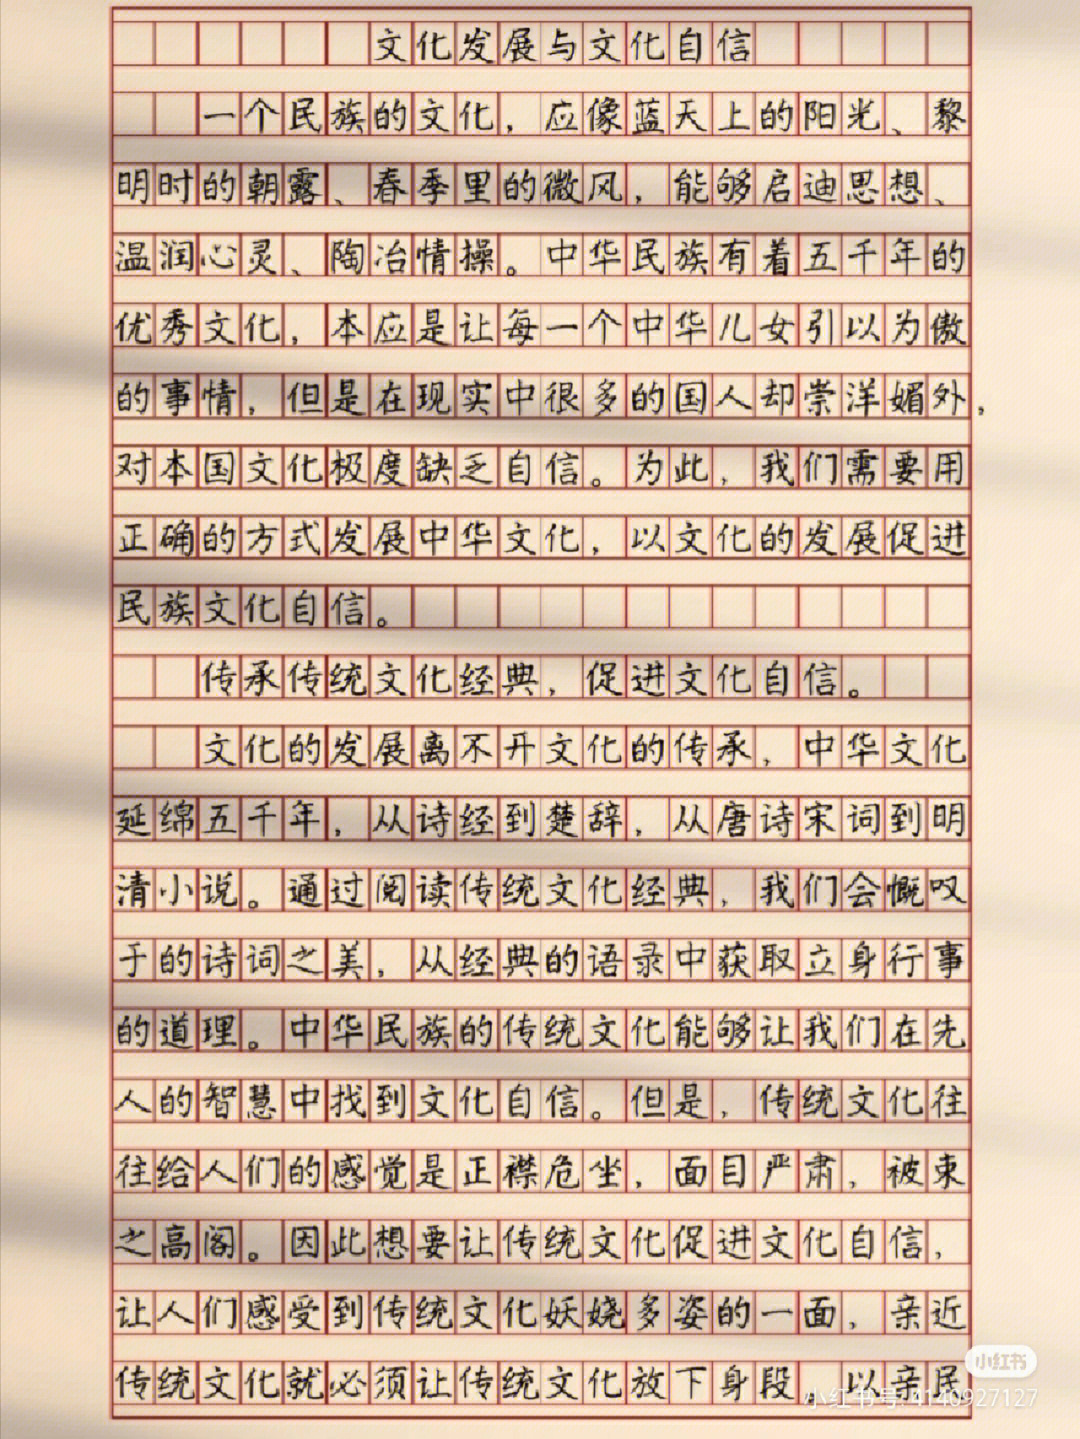 文化发展与文化自信
一个民族的文化，应像蓝天上的阳光、黎
明时的朝露、春季里的微风，能够启迪思想、
温润心灵、陶冶情操。中华民族有着五千年的
优秀文化，本应是让每一个中华儿女引以为傲
的事情，但是在现实中很多的国人却崇洋媚外，
对本国文化极度缺乏自信。为此，我们需要用
正确的方式发展中华文化，以文化的发展促进
民族文化自信。
传承传统文化经典，促进文化自信。
文化的发展离不开文化的传承，中华文化
延绵五千年，从诗经到楚辞，从唐诗宋词到明
清小说。通过阅读传统文化经典，我们会慨叹
于的诗词之美，从经典的语录中获取立身行事
的道理。中华民族的传统文化能够让我们在先
人的智慧中找到文化自信。但是，传统文化往
往给人们的感觉是正襟危坐，面目严肃，被束
之高阁。因此想要让传统文化促进文化自信，
让人们感受到传统文化妖娆多姿的一面，亲近
传统文化就必须让传统文化放下身段，以亲民
小红书
小红书号: 4140927127